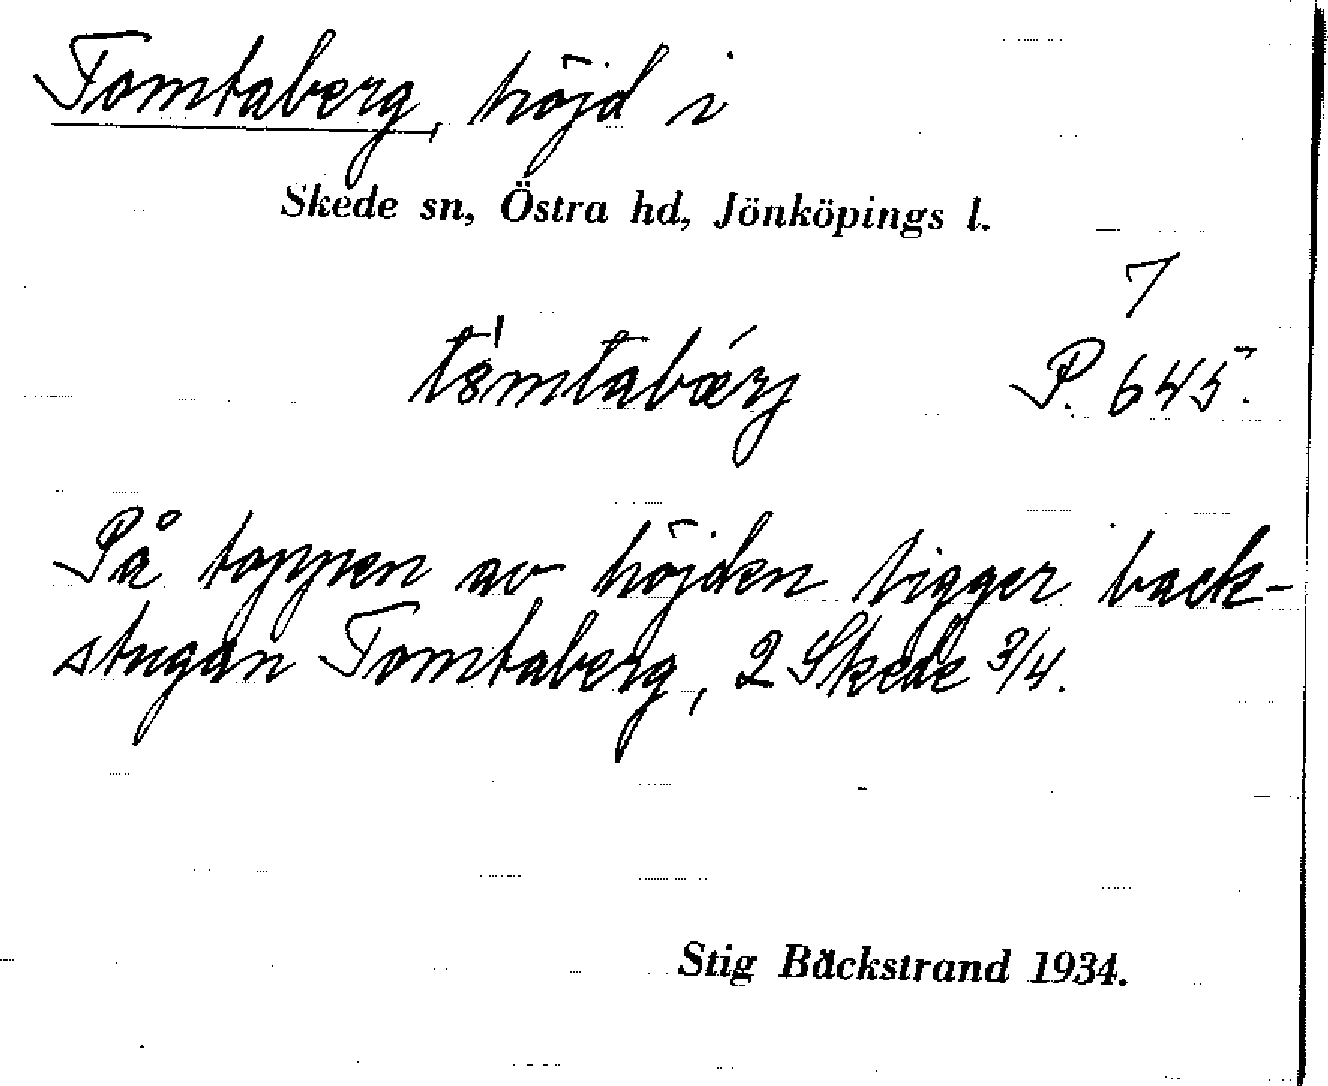 Tomtaberg, höjd i
Skede sn, Östra hd, Jönköpings l.
7
P. 645.
På toppen av höjden ligger back-
stugan Tomtaberg, 2 Skede 3/4.
Stig Bäckstrand 1934.